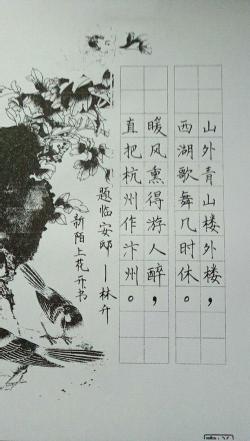 山外青山楼外楼，
西湖歌舞几时休。
暖风熏得游人醉，
直把杭州作汴州。
题临安邸——林升
新陌上花开书